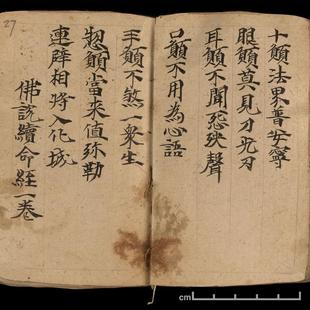 十願法界普安寧
眼願莫見刀光刃
耳願不聞怨殃聲
口願不用為心語
手願不煞一衆生
惣願當來值弥勒
連辟相將入化城
佛說續命經一卷
27
cm